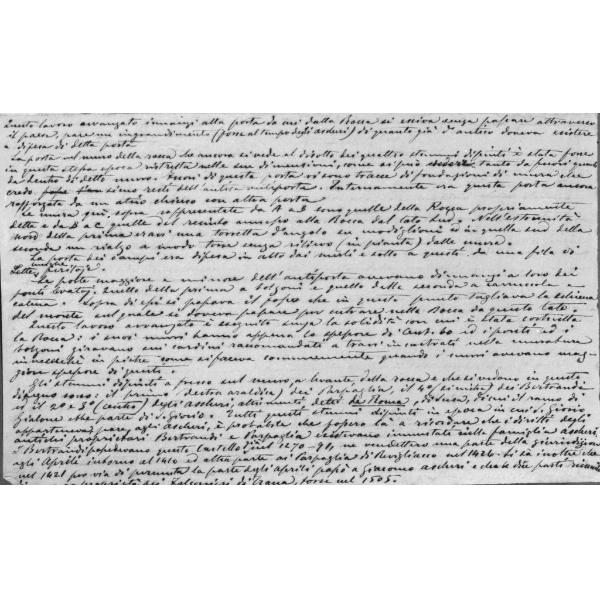 Questo lavoro avanzato innanzi alla porta da cui dalla Rocca si esciva senza passare attraverso
il paese, pare un ingrandimento (forse al tempo degli ascheri) di quanto già d'antico doveva esistere
a difesa di detta porta.
La porta nel muro della rocca che ancora si vede al disotto dei quattro stemmi dipinti è stata fone
in questa stessa epoca ristretta nelle sue dimensioni, come si può tanto da fuori quanto
di dentro del muro. Fuori di questa porta vi sono tracce di fondazioni di mura che
credo siano resti dell'antica antiporta. Internamente era questa porta ancora
rafforzata da un atrio chiuso con altra porta.
Le mura qui sopra rappresentate da A a B sono quelle della Rocca propriamente
detta e da B a C quelle del recinto annesso alla Rocca dal lato sud. Nell'estremità
nord della prima eravi una torretta d'angolo su modiglioni ed in quella sud della
seconda un rialzo a modo torre senza rilievo (in pianta) dalle mura.
La porta dei campi era difesa in alto dai merli e sotto a questi da una fila di
Le porte maggiore e minore dell'antiporta avevano dinanzi a loro dei
ponti levatoj. Quello della prima a bolzoni e quello della seconda a carrucola e
catena. Sopra di essi si passava il fosso che in questo punto tagliava la schiena
del monte sul quale si doveva passare per entrare nella Rocca da questo lato.
Questo lavoro avanzato è eseguito senza la solidità con cui è stata costruita
la Rocca: i suoi muri hanno appena lo spessore di Cent. 60 ed i ponti ed i
bolzoni giravano sui cardini raccomandati a travi incastrati nella muratura
in pietra come si faceva comunemente quando i muri avevano mag-
giore spessore di questo.
Gli stemmi dipinti a fresco sul muro a levante della rocca e che si vedono in questo
disegno sono: il primo (destra araldica) dei Parpaglia, il 4o (sinistra) dei Bertrandi
ed il 2o e 3o (centro) degli ascheri, altrimenti detti de Roma, di Susa, di cui il ramo di
Giaglione fa parte di S. Giorio. Tutti questi stemmi dipinti in epoca in cui S. Giorio
apparteneva, pare, agli ascheri, è probabile che fossero là a ricordare che i diritti degli
antichi proprietari Bertrandi e Parpaglia esistevano immutati nella famiglia ascheri.
I Bertrandi possedevano questo Castello nel 1270-91, ne vendettero una parte della giurisdizione
agli Aprili intorno al 1410 ed altra parte ai Parpaglia di Revigliasco nel 1426. Si sa inoltre che
nel 1421 per via di permuta la parte degli Aprili passò a Giacomo ascheri e che le due parti
forse nel 1505.